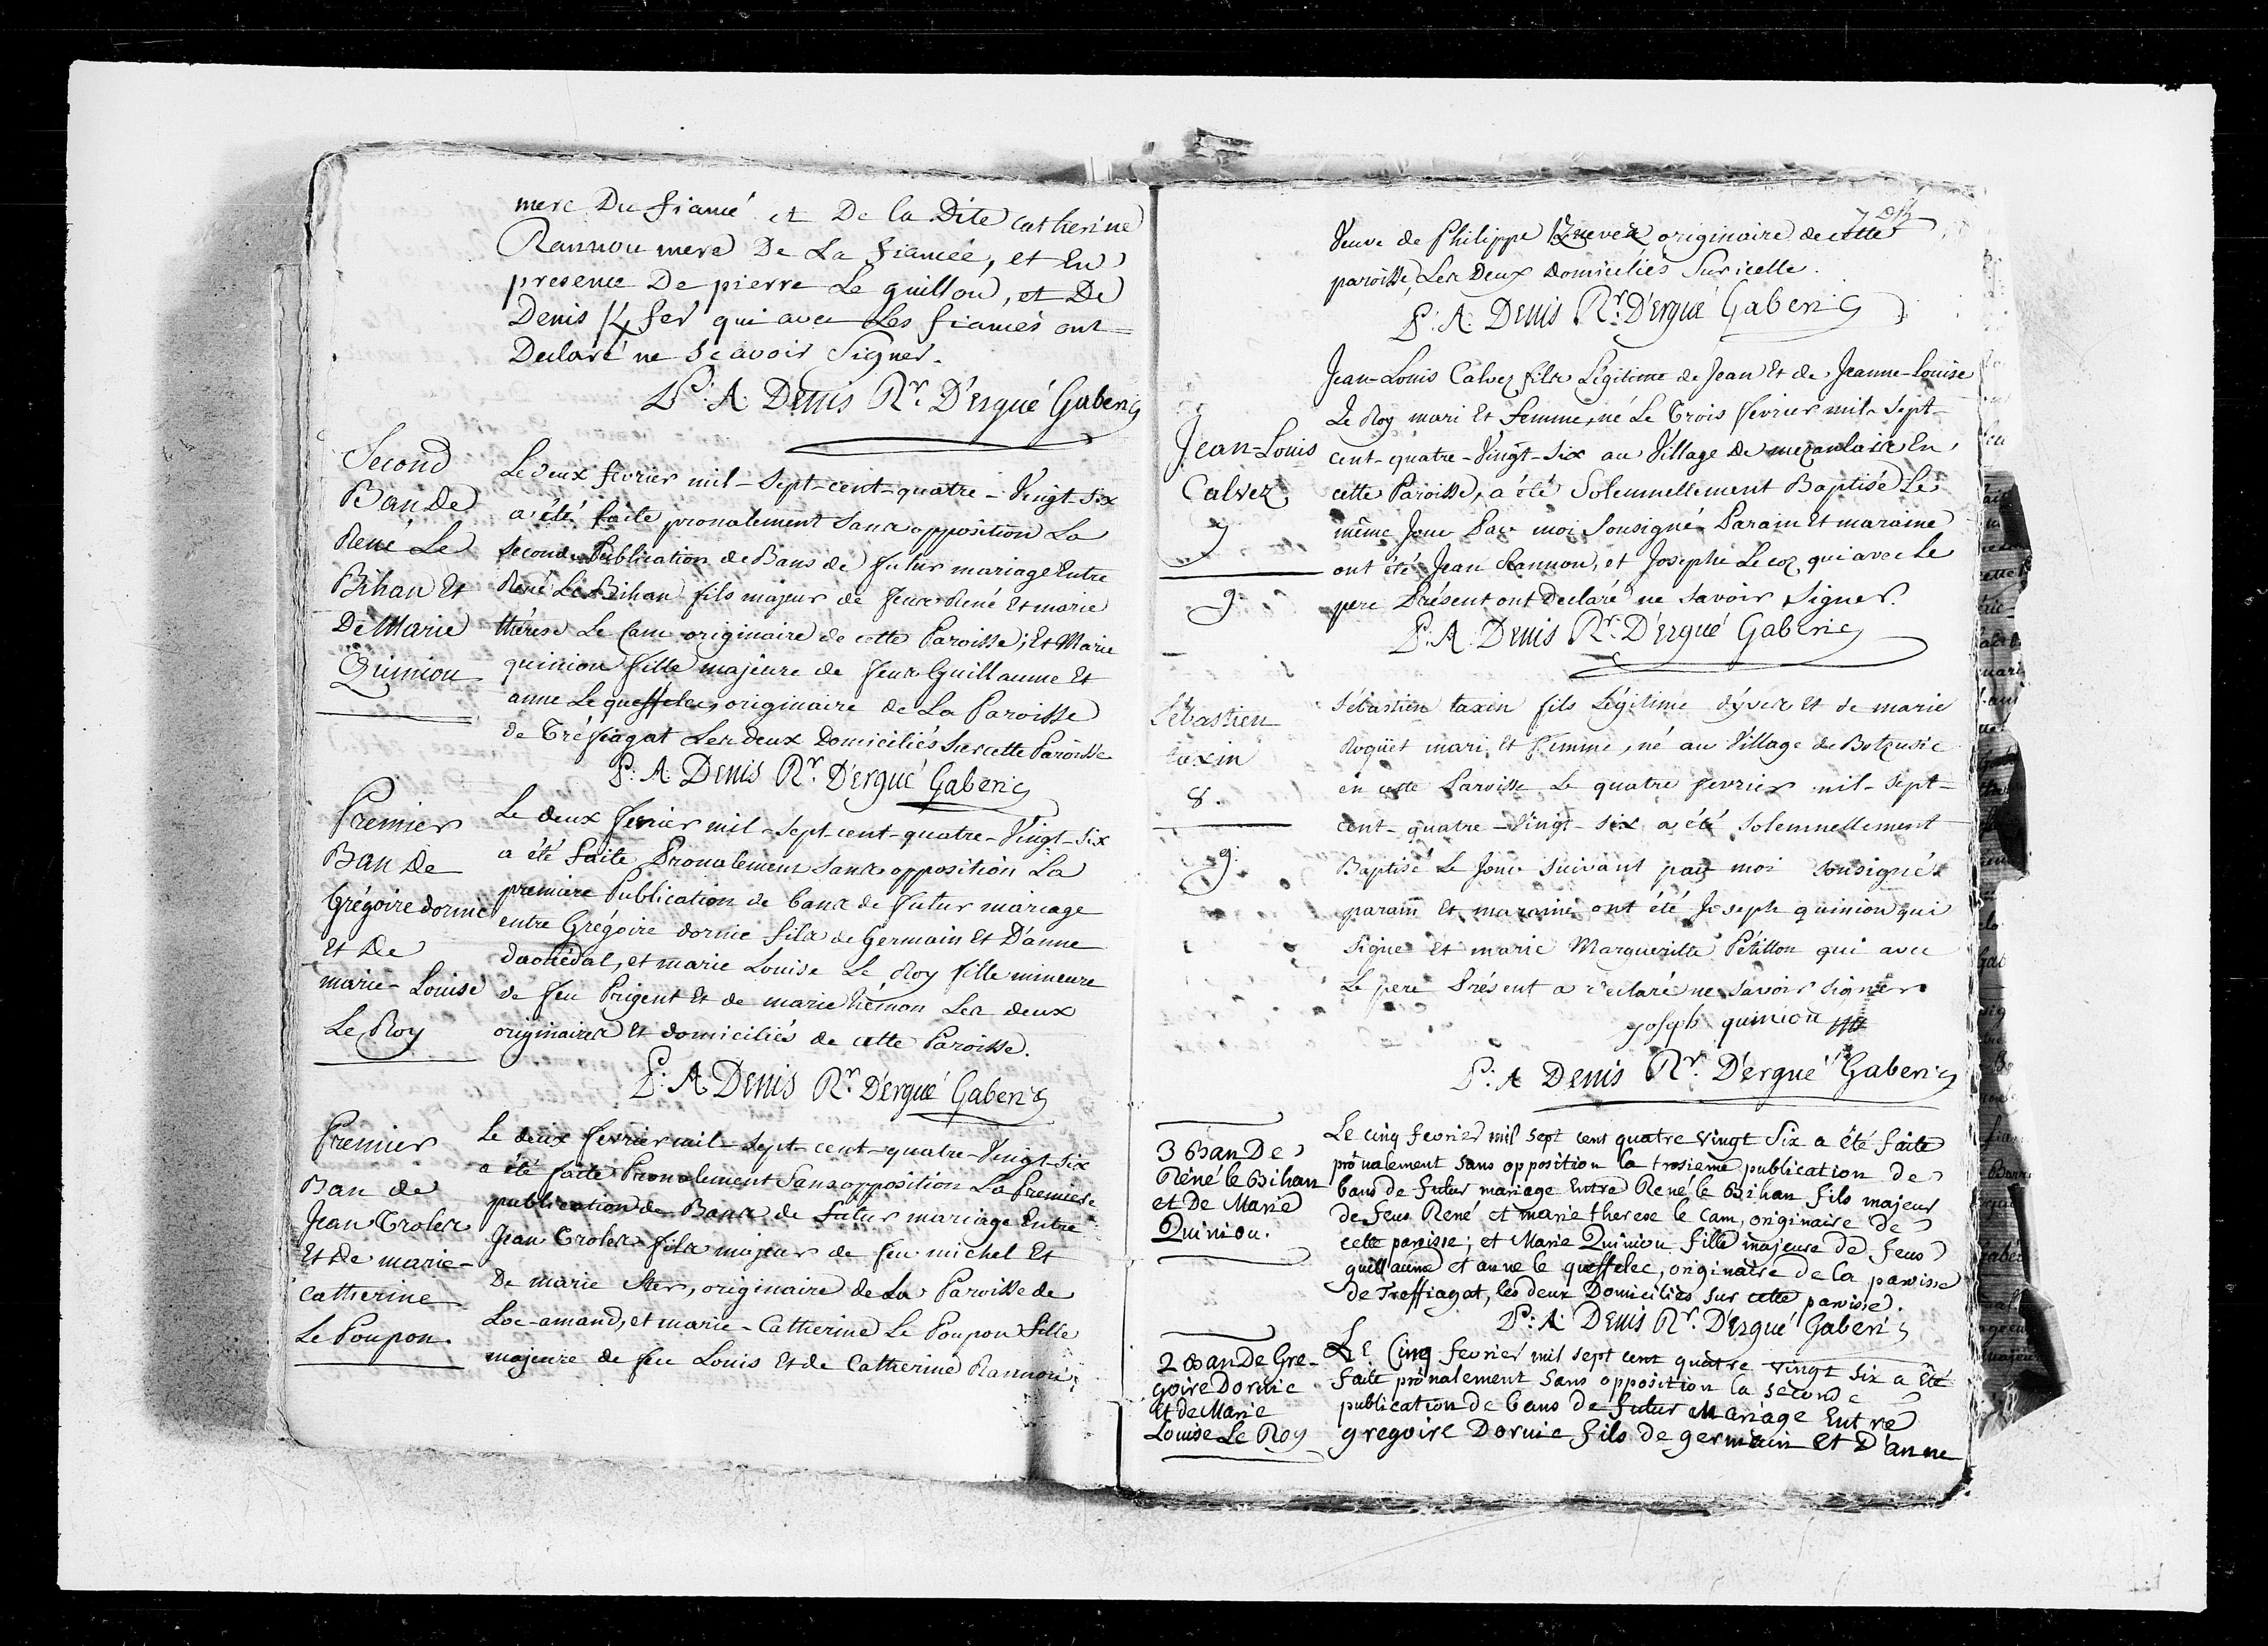 mere Du fiancé et De la Dite catherine
Rannou mere De La fiancée, et En
presence De pierre Le guillou, et De
Denis fer qui avec Les fiancés ont
Declaré ne scavoir Signer.
P: A: Denis Rr. D'ergué Gaberic
Second
Ban de
René Le
Bihan Et
De Marie
Quiniou
Le deux fevrier mil-sept-cent-quatre-Vingt-six
a été faite pronalement sans opposition La
seconde Publication de Bans de futur mariage Entre
René Le Bihan fils majeur de feus René Et marie
thérese Le Cam originaire de cette Paroisse; Et Marie
quiniou fille majeure de feus Guillaume Et
anne Le queffelec, originaire de La Paroisse
de Tréfiagat Les deux Domiciliés Sur cette Paroisse
P: A: Denis Rr. D'ergué Gaberic
Premier
Ban de
Grégoire dornic
Et De
marie-Louise
Le Roy
Le deux fevrier mil-sept-cent-quatre-Vingt-six
a été faite Pronalement sans opposition La
premiere Publication de bans de futur mariage
entre Grégoire dornic fils de Germain Et D'anne
daoüédal, et marie Louise Le Roy fille mineure
de feu Prigent Et de marie hémon Les deux
originaires Et domiciliés de cette Paroisse.
P: A Denis Rr. D'ergué Gaberic
Premier
Ban de
Jean Troles
Et de marie-
catherine
Le Poupon.
Le deux fevrier mil-sept-cent-quatre-Vingt-six
a été faite Pronalement Sans opposition La Premiere
publication de Bans de futur mariage Entre
Jean Troles fils majeur de feu michel Et
De marie Ster, originaire de La Paroisse de
Loc-amand, et marie-Catherine Le Poupon fille
majeure de feu Louis Et de Catherine Rannou;
Veuve de Philippe originaire de cette
paroisse, Les Deux Domiciliés Sur icelle.
P: A: Denis Rr. D'ergué Gaberic
Jean-Louis
Calvez
7
g
Jean-Louis Calvez fils Légitime de Jean Et de Jeanne-Louise
Le Roy mari Et femme, né Le Trois fevrier mil-sept-
cent-quatre-Vingt-six au Village de mezanlair En
cette Paroisse, a été Solemnellement Baptisé Le
même Jour Par moi Sousigné Parain Et maraine
ont été Jean Rannou, et Josephe Le coz, qui avec Le
pere Présent ont Declaré ne Savoir Signer.
P: A: Denis Rr. D'ergué Gaberic
Sébastien
taxin
8.
g.
Sébastien taxin fils Légitime d'yves Et de marie
Roqüet mari Et femme, né au Village de Botzusic
en cette Paroisse Le quatre fevrier mil-sept-
cent-quatre-Vingt-six a été Solemnellement
Baptisé Le Jour suivant par moi sousigné
parain Et maraine ont été Joseph quiniou qui
signe Et marie Margueritte Pétillon qui avec
Le pere Présent a déclaré ne savoir signer
joseph quiniou
P: A Denis Rr. D'ergué Gaberic
3 Ban De
Réné le Bihan
et De Marie
Quiniou.
Le cinq fevrier mil sept cent quatre vingt Six a été faite
prônalement sans opposition la troisieme publication de
bans de futur mariage Entre René le Bihan fils majeur
de feus René et marie therese le Cam, originaire de
cette paroisse; et Marie Quiniou fille majeure de feus
guillaume et anne le queffelec, originaire de la paroisse
de Treffiagat, les deux Domiciliés sur cette paroisse.
P: A: Denis Rr. D'ergué Gaberic
2 Ban De Gre-
goire Dornic
Et de Marie
Louise Le Roy
Le Cinq fevrier mil sept cent quatre vingt six a Eté
faite prônalement sans opposition la seconde
publication de bans de futur Mariage Entre
gregoire Dornic fils de germain Et D'anne